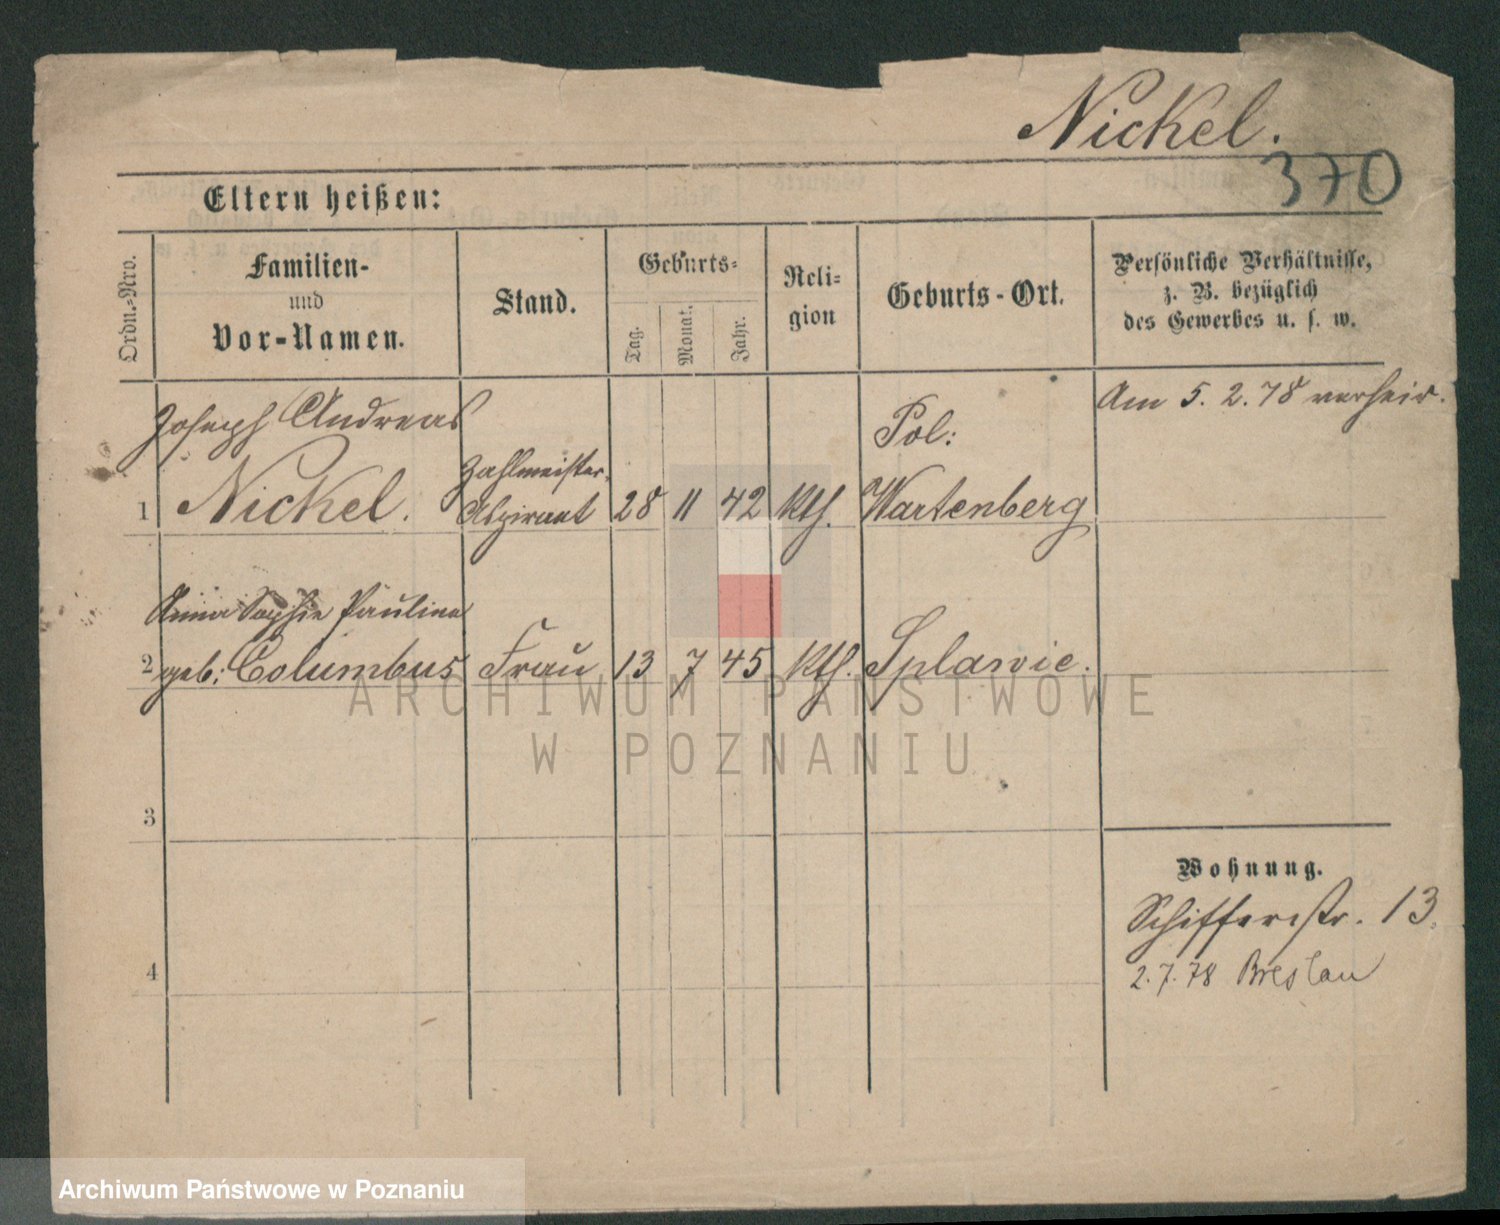 Nickel.
370
Eltern heißen:
Ordn.-Nro.
Familien-
und
Vor-Namen.
Stand.
Geburts-
Tag.
Monat.
Jahr.
Reli-
gion
Geburts-Ort.
Persönliche Verhältnisse,
z. B. bezüglich
des Gewerbes u. s. w.
Joseph Andreas
Zahlmeister-
Pol:
Am 5. 2. 78 verheir.
1 Nickel. Aspirant 28 11 42 Kth. Wartenberg
Anna Sophie Pauline
2 geb: Columbus Frau 13 7 45 Kth. Splawie.
ARCHIWUM PAŃSTWOWE
W POZNANIU
3
Wohnung.
Schifferstr. 13.
4
2. 7. 78 Breslau
Archiwum Państwowe w Poznaniu